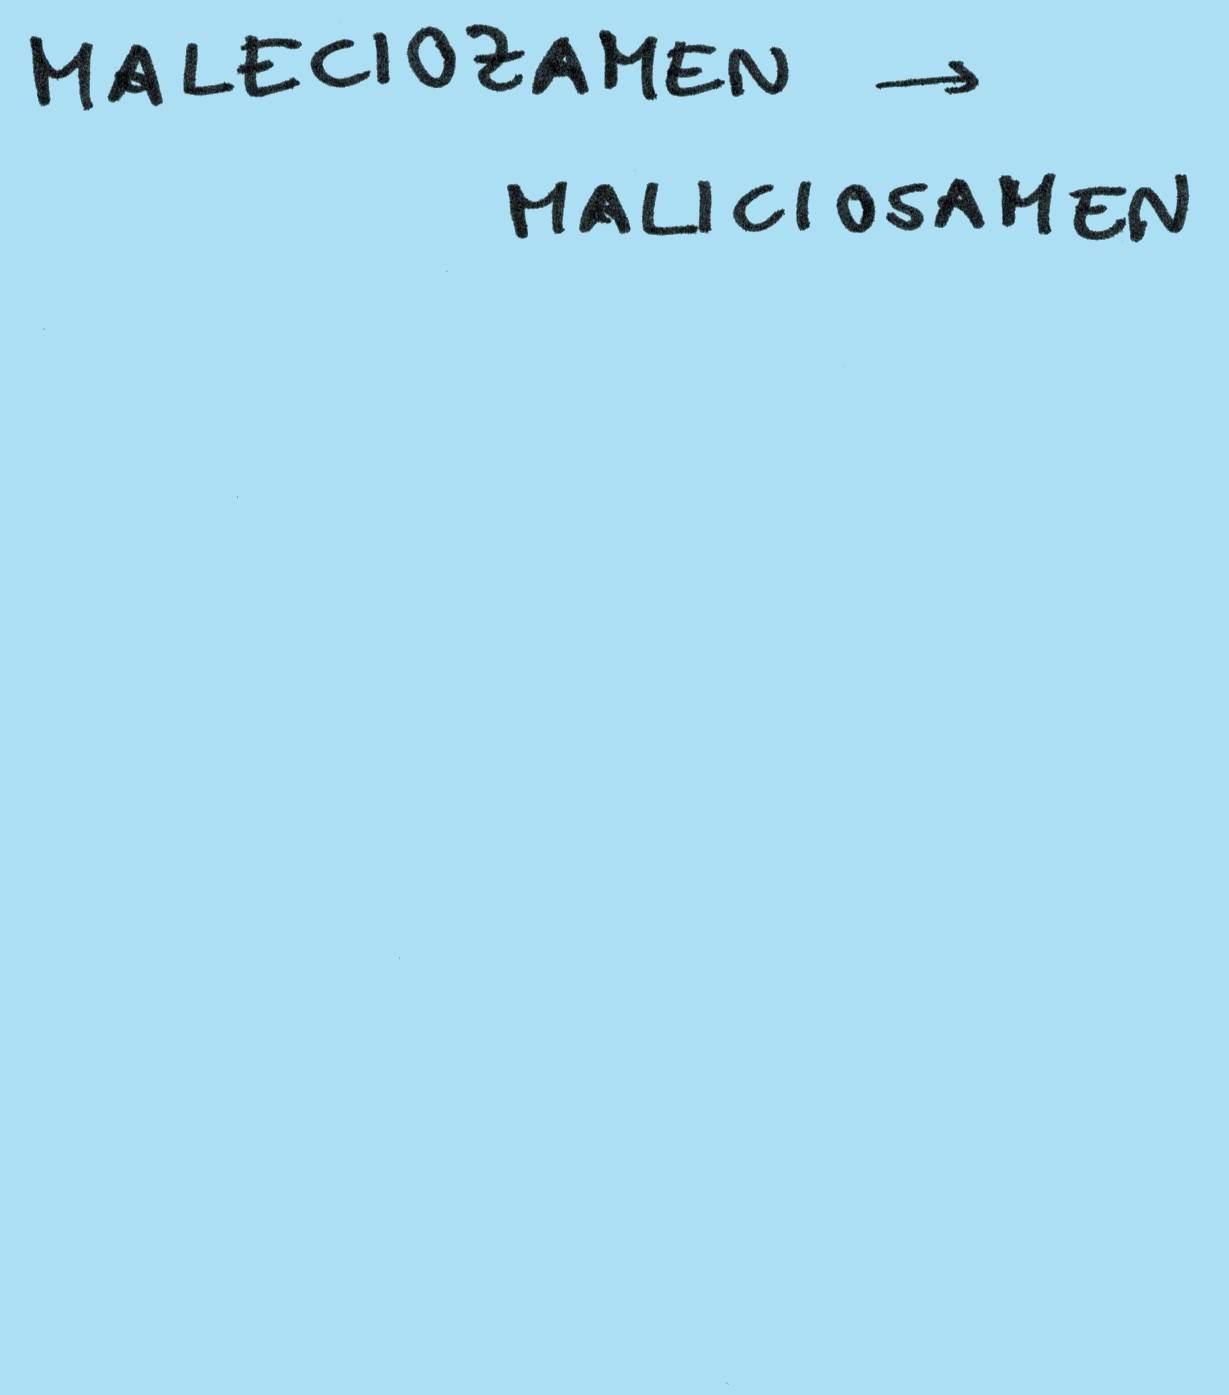 MALECIOZAMEN →
MALICIOSAMEN